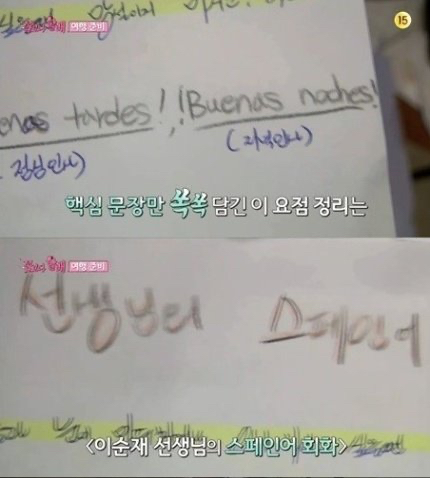 꽃보다할배 여행 준비
15
enas tardes! ¡Buenas noches!
점심인사)
(저녁인사)
핵심 문장만 쏙쏙 담긴 이 요점 정리는
꽃보다할배 여행 준비
선생님의 스페인어
<이순재 선생님의 스페인어 회화>